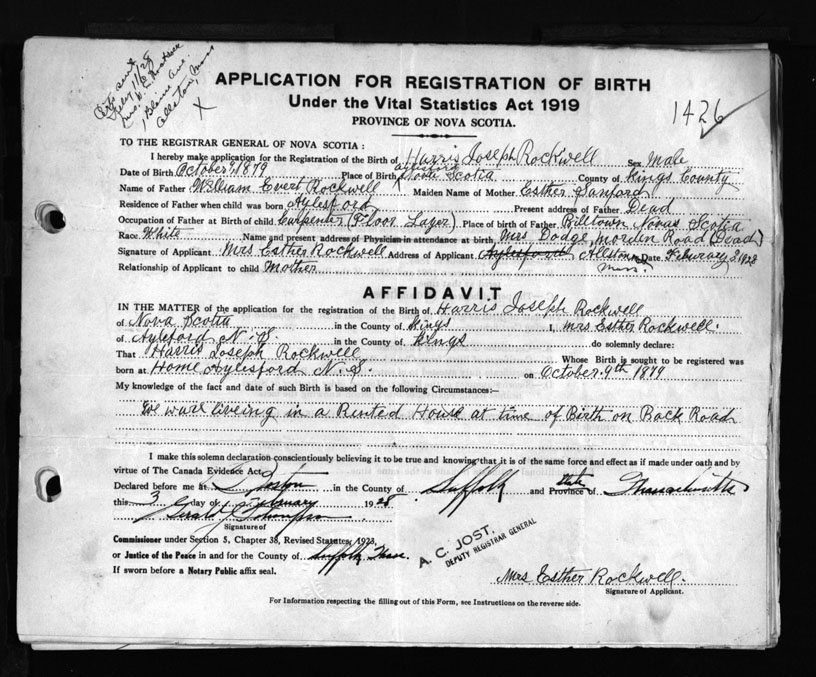 July 11/28
1 Blaine Ave.
Allston, Mass
X
APPLICATION FOR REGISTRATION OF BIRTH
Under the Vital Statistics Act 1919
PROVINCE OF NOVA SCOTIA.
1426
TO THE REGISTRAR GENERAL OF NOVA SCOTIA:
I hereby make application for the Registration of the Birth of Harris Joseph Rockwell Sex Male
Date of Birth October 9, 1879 Place of Birth Aylesford Nova Scotia County of Kings County
Name of Father William Evert Rockwell Maiden Name of Mother Esther Sanford
Residence of Father when child was born Aylesford Present address of Father Dead
Occupation of Father at Birth of child Carpenter (Floor Layer) Place of birth of Father Billtown Novas Scotia
Race White Name and present address of Physician in attendance at birth Mrs Dodge, Morden Road (Dead)
Signature of Applicant Mrs Esther Rockwell Address of Applicant Aylesford Allston Mass. Date Feburary 3 1928
Relationship of Applicant to child Mother
AFFIDAVIT
IN THE MATTER of the application for the registration of the Birth of Harris Joseph Rockwell
of Nova Scotia in the County of Kings I, Mrs Esther Rockwell.
of Ayleford N.S. in the County of Kings do solemnly declare:
That Harris Joseph Rockwell Whose Birth is sought to be registered was
born at Home Aylesford N.S. on October 9th 1879
My knowledge of the fact and date of such Birth is based on the following Circumstances:—
We ware liveing in a Rented House at time of Birth on Back Road
I make this solemn declaration conscientiously believing it to be true and knowing that it is of the same force and effect as if made under oath and by
virtue of The Canada Evidence Act.
Declared before me at Boston in the County of Suffolk and State Province of Massachusetts
this 3 day of February 1928.
Thompson
Signature of
Commissioner under Section 5, Chapter 38, Revised Statutes, 1923,
or Justice of the Peace in and for the County of Suffolk Mass.
If sworn before a Notary Public affix seal.
A. C. JOST,
DEPUTY REGISTRAR GENERAL
Mrs Esther Rockwell.
Signature of Applicant.
For Information respecting the filling out of this Form, see Instructions on the reverse side.